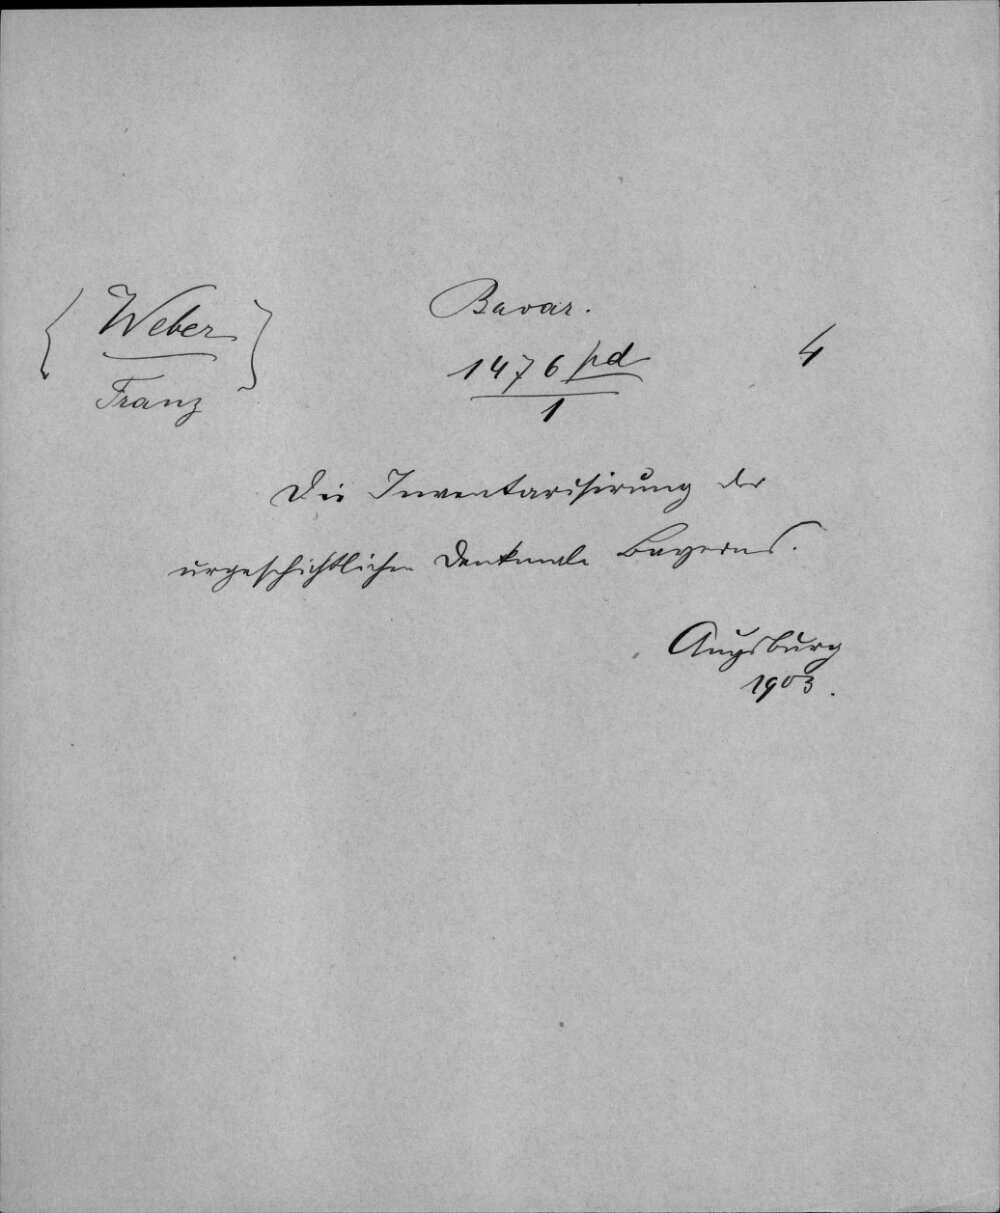 [Weber
Franz]
Bavar.
1476 pd
1
4
Die Inventarisirung der
urgeschichtlichen Denkmale Bayerns.
Augsburg
1903.